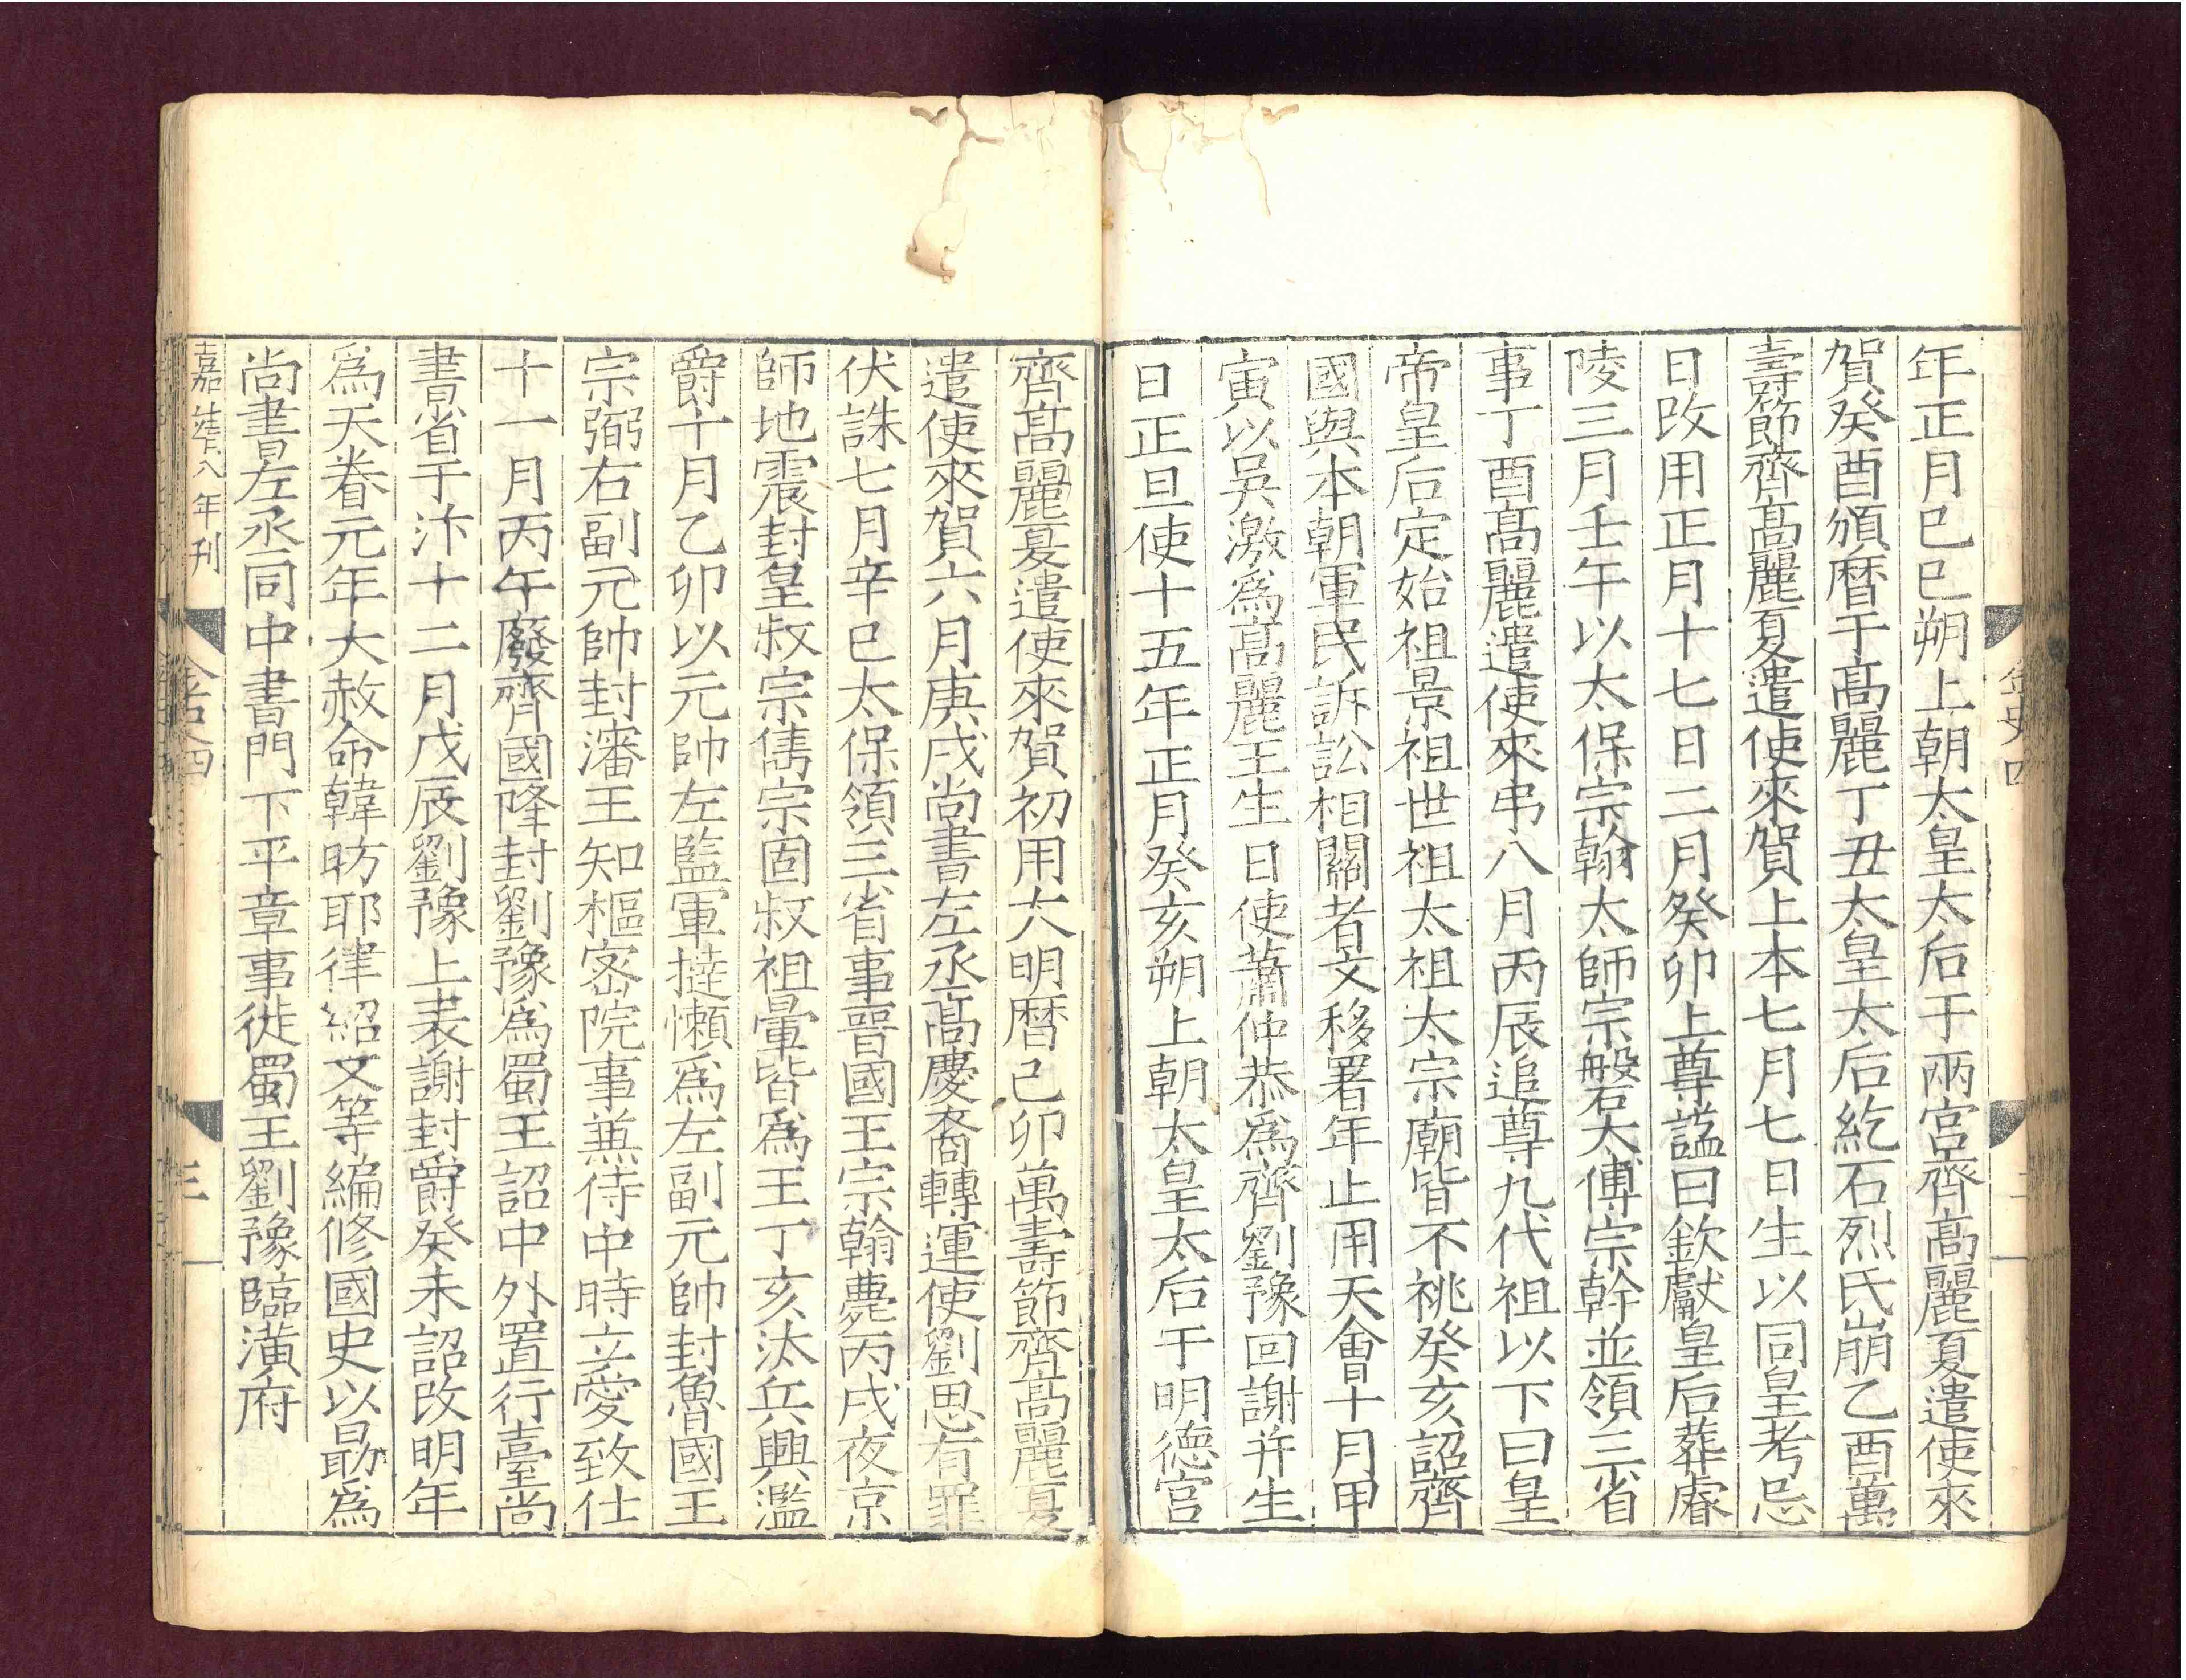 年正月巳巳朔上朝太皇太后于兩宮齊高麗夏遣使來
賀癸酉頒曆于高麗丁丑太皇太后紇石烈氏崩乙酉萬
壽節齊高麗夏遣使來賀上本七月七日生以同皇考忌
日改用正月十七日二月癸卯上尊謚曰欽獻皇后葬睿
陵三月壬午以太保宗翰太師宗磐太傅宗幹並領三省
事丁酉高麗遣使來弔八月丙辰追尊九代祖以下曰皇
帝皇后定始祖景祖世祖太祖太宗廟皆不祧癸亥詔齊
國與本朝軍民訴訟相關者文移署年止用天會十月甲
寅以吳激爲高麗王生日使蕭仲恭爲齊劉豫回謝并生
日正旦使十五年正月癸亥朔上朝太皇太后于明德宮
金史四
二
齊高麗夏遣使來賀初用大明曆己卯萬壽節齊高麗夏
遣使來賀六月庚戌尚書左丞高慶裔轉運使劉思有罪
伏誅七月辛巳太保領三省事晉國王宗翰薨丙戌夜京
師地震封皇叔宗雋宗固叔祖暈皆爲王丁亥汰兵興濫
爵十月乙卯以元帥左監軍撻懶爲左副元帥封魯國王
宗弼右副元帥封瀋王知樞密院事兼侍中時立愛致仕
十一月丙午廢齊國降封劉豫爲蜀王詔中外置行臺尚
書省于汴十二月戊辰劉豫上表謝封爵癸未詔改明年
爲天眷元年大赦命韓昉耶律紹文等編修國史以勗爲
尚書左丞同中書門下平章事徙蜀王劉豫臨潢府
嘉靖八年刊
金史四
三